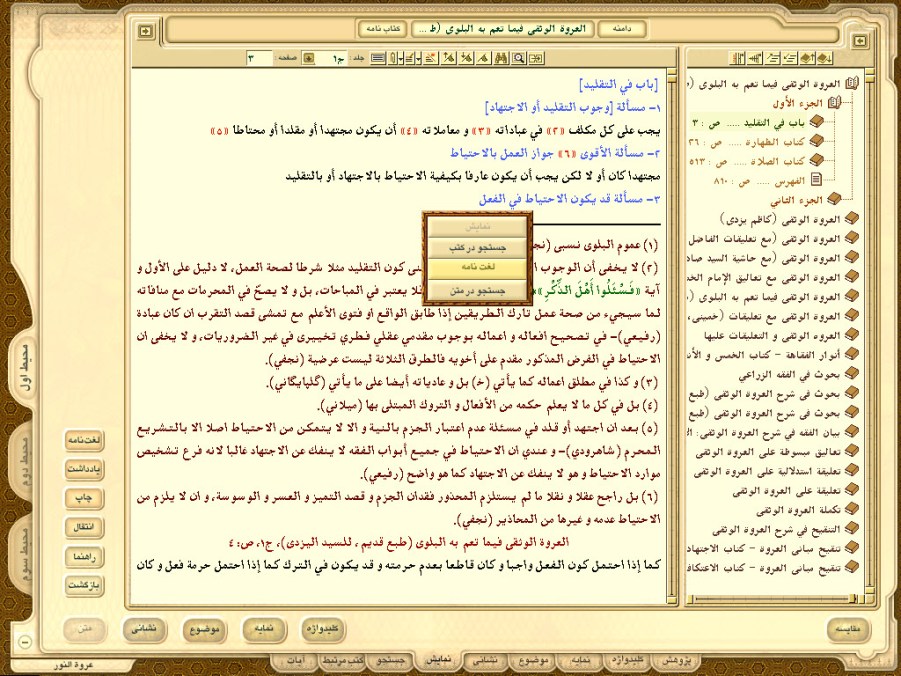 دامنه
العروة الوثقى فيما تعم به البلوى (ط ...
كتاب نامه
جلد: ج١
صفحه:
٣
[باب في التقليد]
١- مسألة [وجوب التقليد أو الاجتهاد]
يجب على كل مكلف «٢» في عباداته «٣» و معاملاته «٤» أن يكون مجتهدا أو مقلدا أو محتاطا «٥»
٢- مسألة الأقوى «٦» جواز العمل بالاحتياط
مجتهدا كان أو لا لكن يجب أن يكون عارفا بكيفية الاحتياط بالاجتهاد أو بالتقليد
٣- مسألة قد يكون الاحتياط في الفعل
(١) عموم البلوى نسبى
(٢) لا يخفى أن الوجوب كون التقليد مثلا شرطا لصحة العمل، لا دليل على الأول و
آية «فَسْئَلُوا أَهْلَ الذِّكْرِ» يعتبر في المباحات، بل و لا يصحّ في المحرمات مع منافاته
لما سيجيء من صحة عمل تارك الطريقين إذا طابق الواقع او فتوى الأعلم مع تمشي قصد التقرب ان كان عبادة
(رفيعي)- في تصحيح افعاله و اعماله بوجوب مقدمي عقلي فطري تخييرى في غير الضروريات، و لا يخفى ان
الاحتياط في الفرض المذكور مقدم على أخويه فالطرق الثلاثة ليست عرضية (نجفي).
(٣) و كذا في مطلق اعماله كما يأتي (خ) بل و عادياته أيضا على ما يأتي (گلپايگاني).
(٤) بل في كل ما لا يعلم حكمه من الأفعال و التروك المبتلى بها (ميلاني).
(٥) بعد ان اجتهد أو قلد في مسئلة عدم اعتبار الجزم بالنية و الا لا يتمكن من الاحتياط اصلا الا بالتشريع
المحرم (شاهرودي)- و عندي ان الاحتياط في جميع أبواب الفقه لا ينفك عن الاجتهاد غالبا لانه فرع تشخيص
موارد الاحتياط و هو لا ينفك عن الاجتهاد كما هو واضح (رفيعي).
(٦) بل راجح عقلا و نقلا ما لم يستلزم المحذور فقدان الجزم و قصد التميز و العسر و الوسوسة، و ان لا يلزم من
الاحتياط عدمه و غيرها من المحاذير (نجفي).
العروة الوثقى فيما تعم به البلوى (طبع قديم ، للسيد اليزدى)، ج١، ص: ٤
كما إذا احتمل كون الفعل واجبا و كان قاطعا بعدم حرمته و قد يكون في الترك كما إذا احتمل حرمة فعل و كان
نمايش
جستجو در كتب
لغت نامه
جستجو در متن
العروة الوثقى فيما تعم به البلوى (ط
الجزء الأول
باب في التقليد ..... ص : ٣
كتاب الطهارة ..... ص : ٢٦
كتاب الصلاة ..... ص : ٥١٣
الفهرس ..... ص : ٨٦٠
الجزء الثاني
العروة الوثقى (كاظم يزدى)
العروة الوثقى (مع تعليقات الفاضل
العروة الوثقى (مع حاشية السيد صاد
العروة الوثقى مع تعاليق الإمام الخم
العروة الوثقى فيما تعم به البلوى (
العروة الوثقى مع تعليقات (خمينى،
العروة الوثقى و التعليقات عليها
أنوار الفقاهة - كتاب الخمس و الأن
بحوث في الفقه الزراعي
بحوث في شرح العروة الوثقى (طبع
بحوث في شرح العروة الوثقى (طبع
بيان الفقه في شرح العروة الوثقى: ال
تعاليق مبسوطة على العروة الوثقى
تعليقة استدلالية على العروة الوثقى
تعليقة على العروة الوثقى
تكملة العروة الوثقى
التنقيح في شرح العروة الوثقى
تنقيح مبانى العروة - كتاب الاجتهاد
تنقيح مبانى العروة - كتاب الاعتكاف
محيط اول
محيط دوم
محيط سوم
لغت نامه
يادداشت
چاپ
انتقال
راهنما
بازگشت
مقايسه
كليدواژه
نمايه
موضوع
نشانى
متن
پژوهش
كليدواژه
نمايه
موضوع
نشانى
نمايش
جستجو
كتب مرتبط
آيات
عروة النور